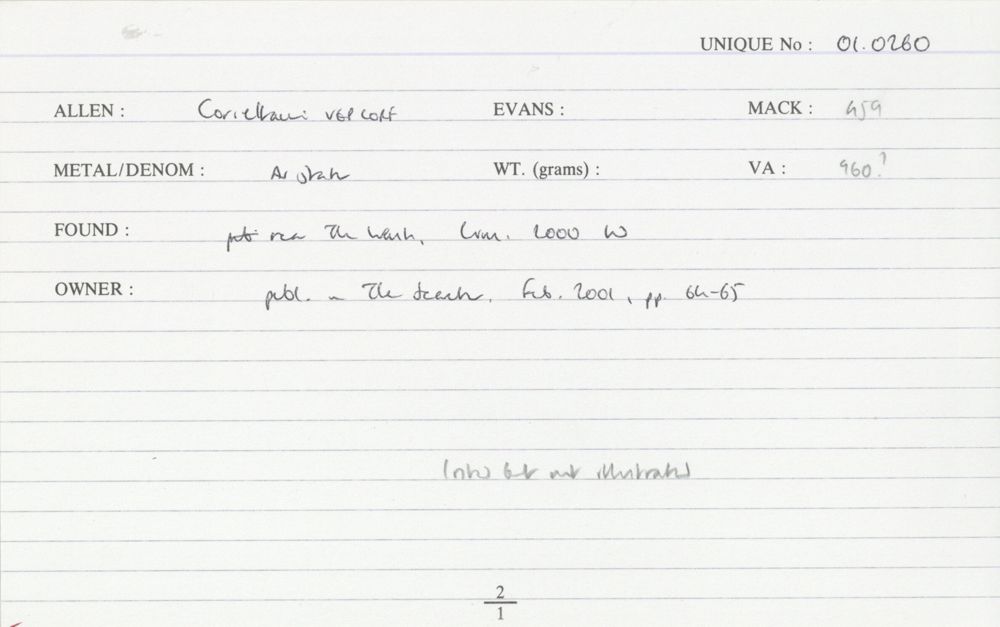 UNIQUE No : 01.0260
ALLEN : Corieltauvi VEP CORF EVANS : MACK : 459
METAL/DENOM : AV stater WT. (grams) : VA : 960?
FOUND : near The Wash, 2000 W
OWNER : publ. in The Searcher, Feb. 2001, pp. 64-65
(noted but not illustrated)
2
1